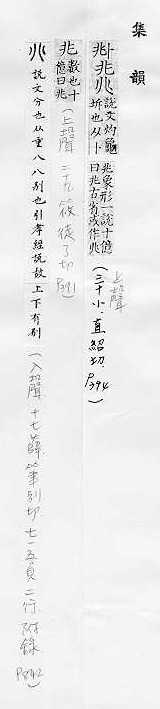 集韻
𠧞兆𠔁 說文灼龜坼也从卜兆象形一說十億曰兆古省或作兆（上聲 三十小．直紹切．P394）
兆 數也十億曰兆（上聲 二十九篠徒了切 P391）
𠔁 說文分也从重八八別也引孝經說故上下有別（入聲 十七薛．筆別切．七一五頁二行．附錄 P842）